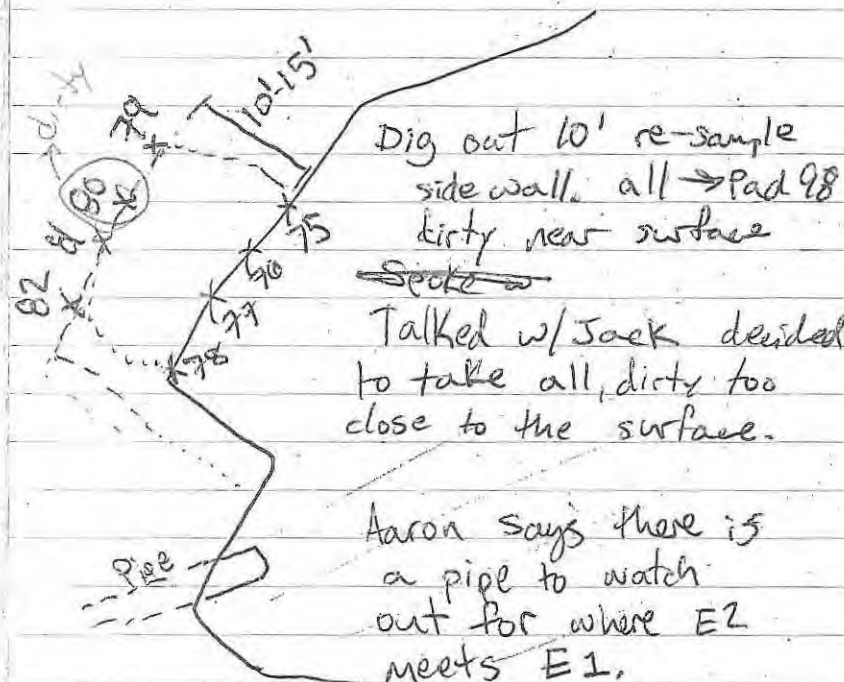 dirty
79
10'-15'
80
81
82
75
76
77
78
Dig out 10' re-sample
side wall. all → Pad 98
dirty near surface
Spoke w
Talked w/Jack decided
to take all, dirty too
close to the surface.
Pipe
Aaron says there is
a pipe to watch
out for where E2
meets E1.